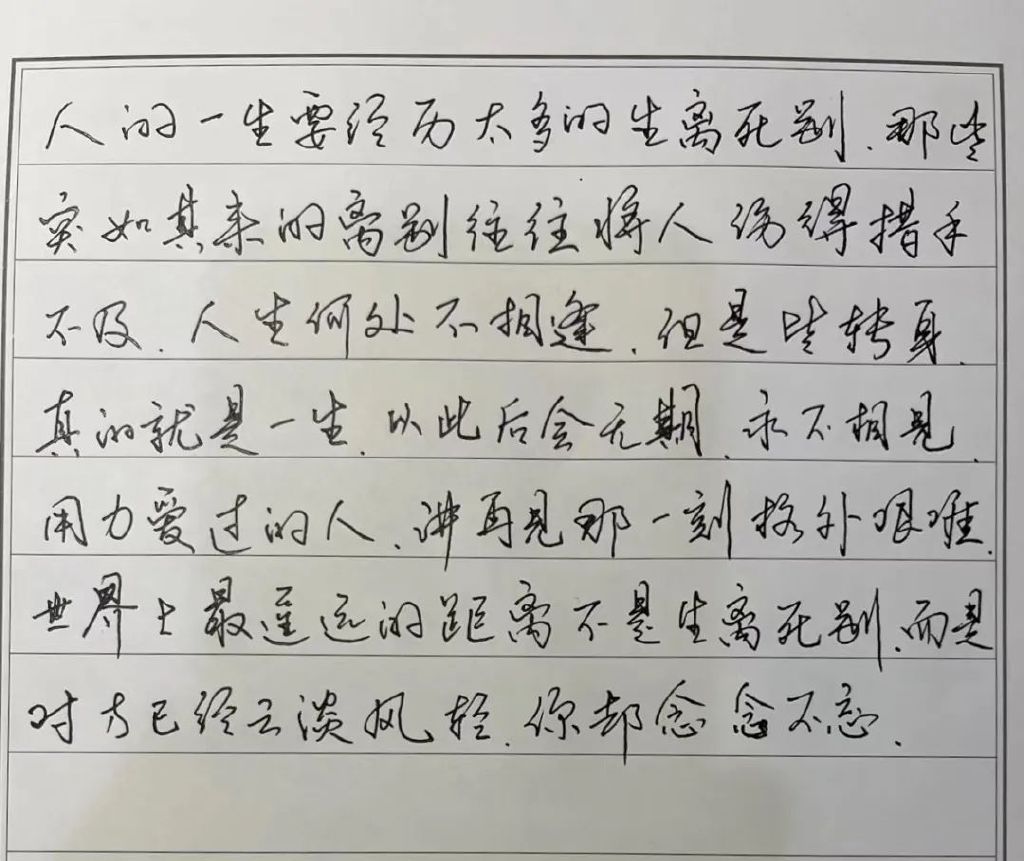 人的一生要经历太多的生离死别.那些
突如其来的离别往往将人伤得措手
不及.人生何处不相逢.但是些转身.
真的就是一生.从此后会无期.永不相见.
用力爱过的人.讲再见那一刻格外艰难.
世界上最遥远的距离不是生离死别.而是
对方已经云淡风轻.你却念念不忘.